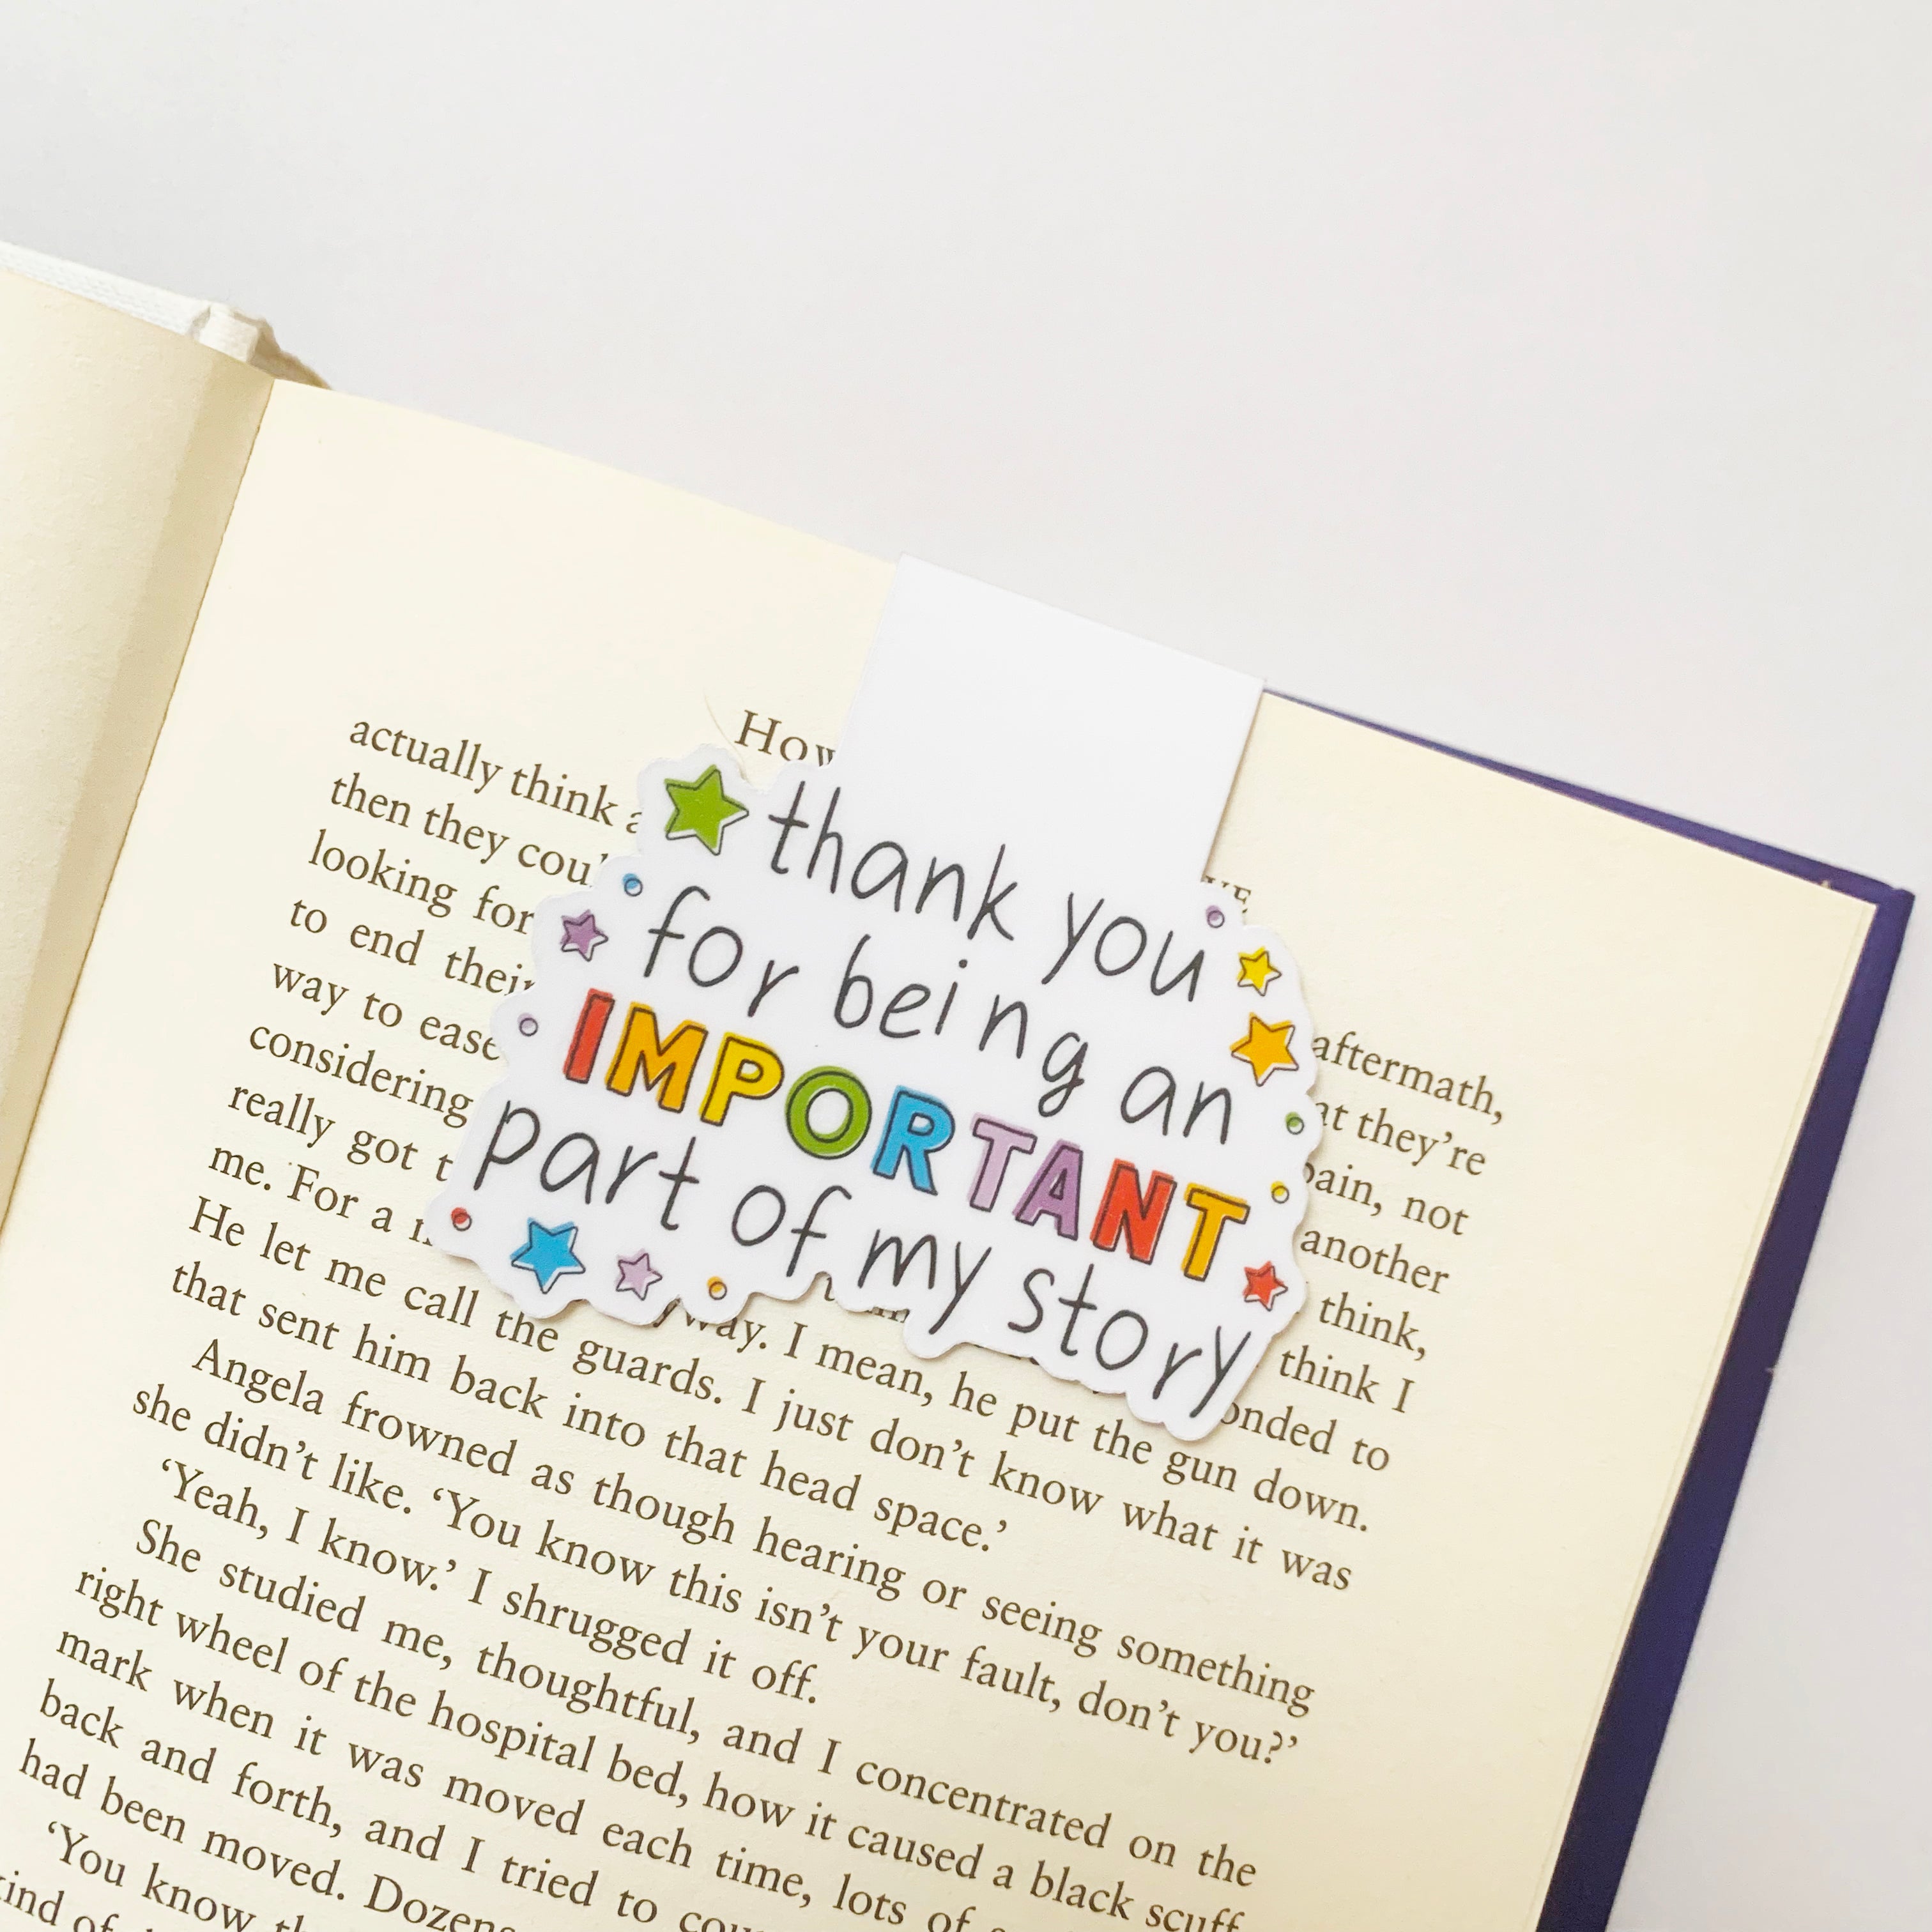 thank you
for being an
IMPORTANT
part of my story
actually think
aftermath,
then they
they're
looking for
not
to end
another
way to ease
think,
considering
think I
really got
to
me. For a
I mean, he put the gun down.
He let me call the guards. I just don't know what it was
that sent him back into that head space.'
Angela frowned as though hearing or seeing something
she didn't like. 'You know this isn't your fault, don't you?'
'Yeah, I know.' I shrugged it off.
She studied me, thoughtful, and I concentrated on the
right wheel of the hospital bed, how it caused a black scuff
mark when it was moved each time, lots of
back and forth, and I tried to
had been moved.
'You know